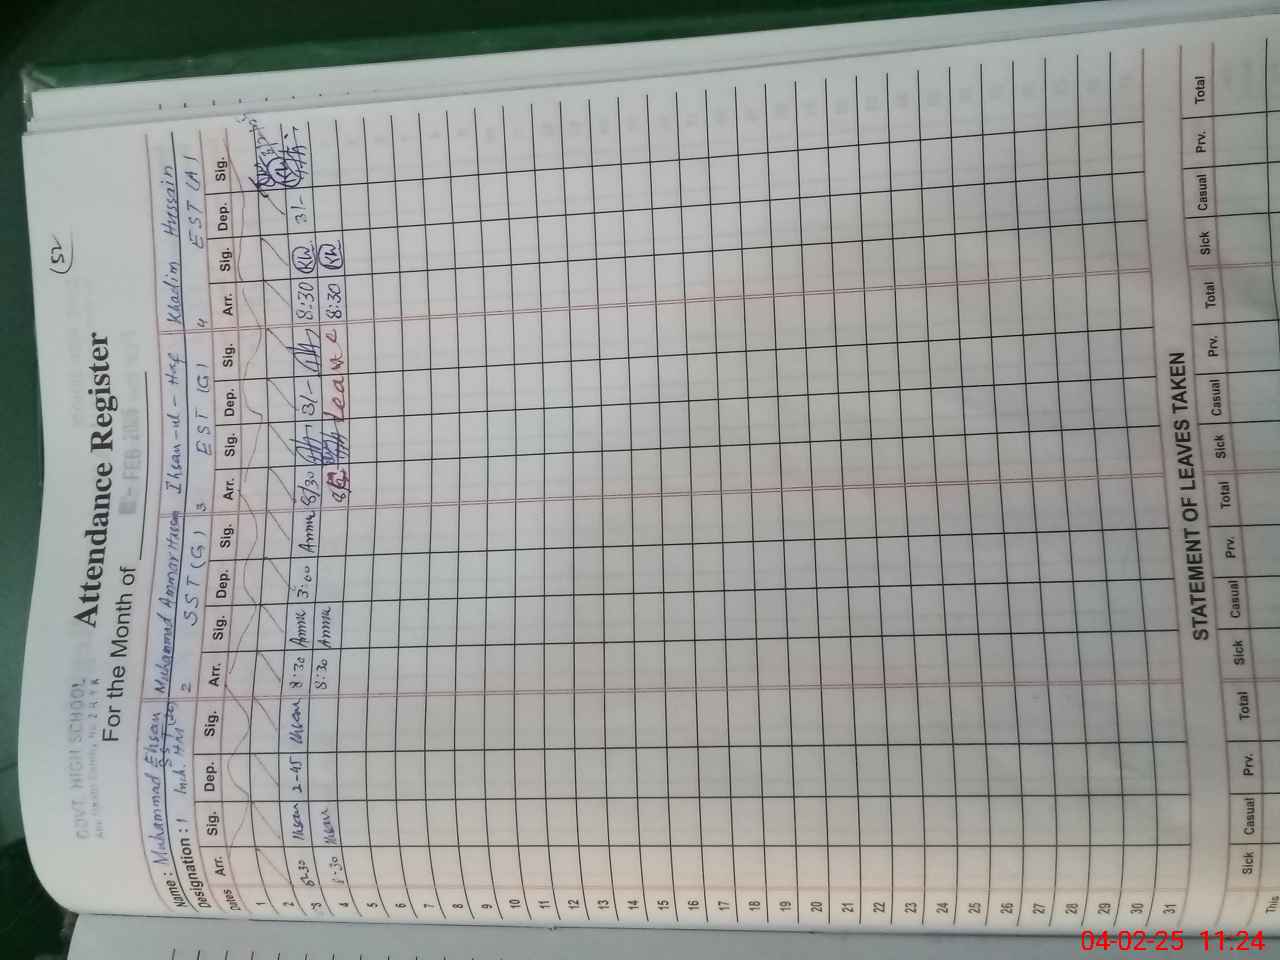 52
GOVT. HIGH SCHOOL
Attendance Register
For the Month of - FEB 2025
Name : Muhammad Ehsan Muhammad Ammar Hassan Ihsan-ul-Haq Khadim Hussain
SST
Designation : 1 Inch. HM 2 SST (G) 3 EST (G) 4 EST (A)
Dates Arr. Sig. Dep. Sig. Arr. Sig. Dep. Sig. Arr. Sig. Dep. Sig. Arr. Sig. Dep. Sig.
1
2
3 8:30 Ihsan 2-45 Ihsan 8:30 Ammar 3:00 Ammar 8/30 3/- 8:30 KH 3/-
4 8:30 Ihsan 8:30 Ammar 8/ Leave 8:30 KH
5
6
7
8
9
10
11
12
13
14
15
16
17
18
19
20
21
22
23
24
25
26
27
28
29
30
31
STATEMENT OF LEAVES TAKEN
Sick Casual Prv. Total Sick Casual Prv. Total Sick Casual Prv. Total Sick Casual Prv. Total
This
04-02-25 11:24